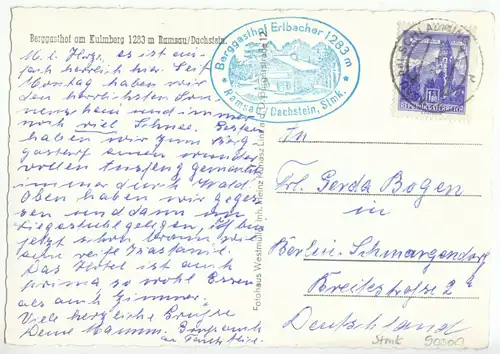 Berggasthof am Kulmberg 1283 m Ramsau/Dachstein.
Berggasthof Erlbacher 1283 m
* Ramsau/Dachstein, Stmk. *
M. l. es ist ein-
fach herrlich hier. Seit
Montag haben wir
den herrlichsten Son-
nenschein und immer
noch viel Schnee. Gestern
haben wir zum Berg
gasthof einen wunder
vollen Ausflug gemacht
immer durch Wald.
Oben haben wir geges-
sen und dann im
Liegestuhl gelegen, Ich bin
jetzt schon braun, wie
eine reife Kastanie.
Das Hotel ist auch
prima, so wohl Essen
als auch Zimmer.
Viele herzliche Grüße
Deine Mamm. Gruß auch
an
Fotohaus Westmüller Inh. Heinz Kunasz Linz a. d. D.
REPUBLIK ÖSTERREICH
An
Frl. Gerda Bogen
in
Berlin-Schmargendorf
Breitestraße 2a
Deutschland
Stmk